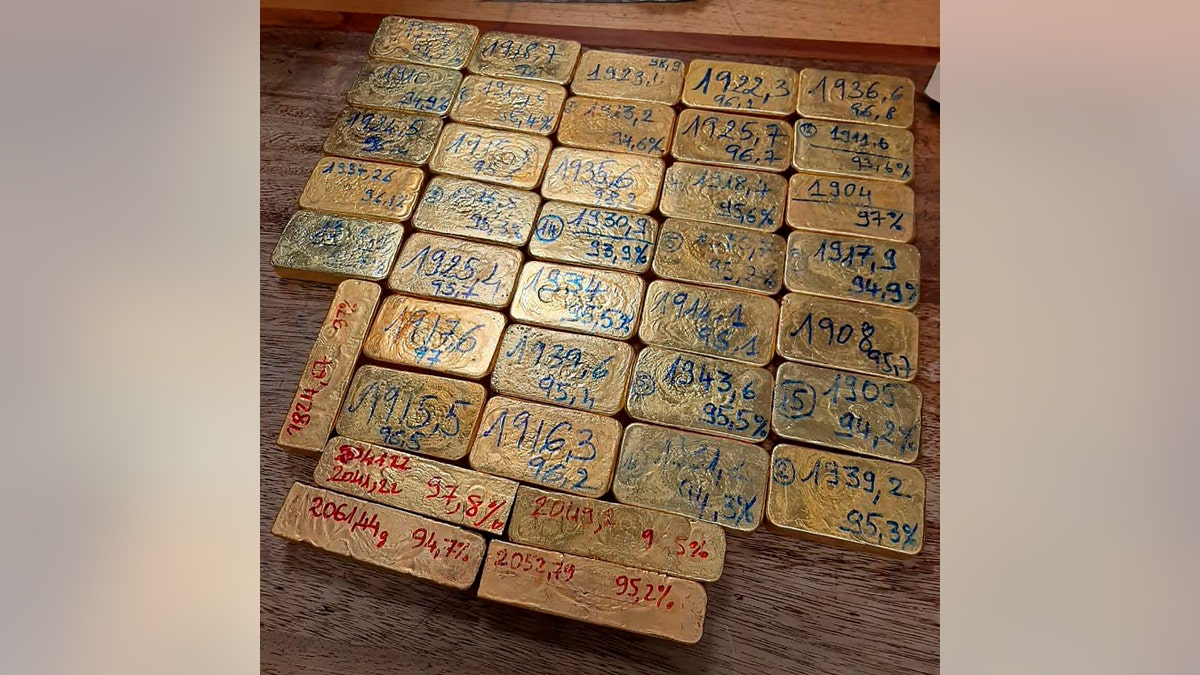 1918,7
98,9
1923,1
1922,3
96,2
1936,6
96,8
1910
94,9%
95,4%
1923,2
94,6%
1925,7
96,7
1911,6
93,6%
1924,5
1935,6
98,2
1918,7
95,6%
1904
97%
1937,26
96,1%
95,3%
14
1930,9
93,9%
5
95,2%
1917,9
94,9%
1925,4
95,7
1934
95,5%
1914,1
95,1
1908
95,7
97%
1824,57
1917,6
97
1939,6
95,4
5
1943,6
95,5%
15
1905
94,2%
1915,5
95,5
1916,3
96,2
94,3%
2
1939,2
95,3%
2041,22
97,8%
2061,44g
94,7%
2049,2
2052,79
95,2%